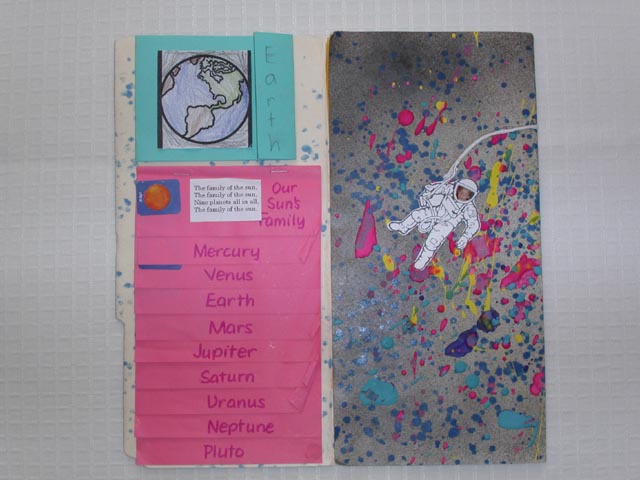 Earth
The family of the sun,
The family of the sun,
Nine planets all in all,
The family of the sun.
Our
Sun's
family
Mercury
Venus
Earth
Mars
Jupiter
Saturn
Uranus
Neptune
Pluto